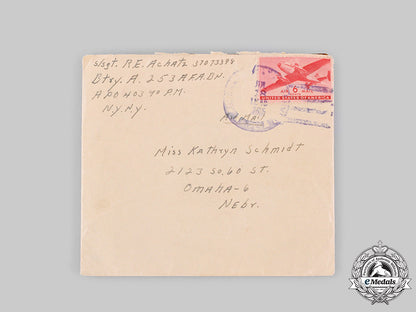 S/Sgt. R.E. Achatz 37073398
Btry. A. 253 A.F.A.Bn.
A.P.O 403 % P.M.
N.Y.N.Y.
6¢
UNITED STATES OF AMERICA
Miss Kathryn Schmidt
2123 So. 60 St.
Omaha-6
Nebr.
eMedals